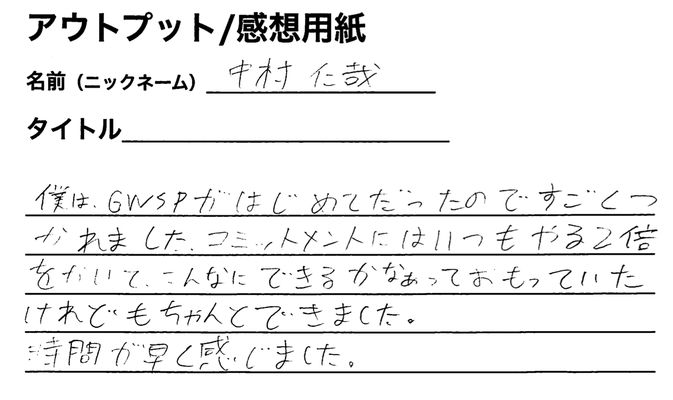 アウトプット/感想用紙
名前（ニックネーム） 中村 仁哉
タイトル
僕は、GWSPがはじめてだったのですごくつ
かれました、コミットメントにはいつもやる2倍
をかいて、こんなにできるかなぁっておもっていた
けれどもちゃんとできました。
時間が早く感じました。